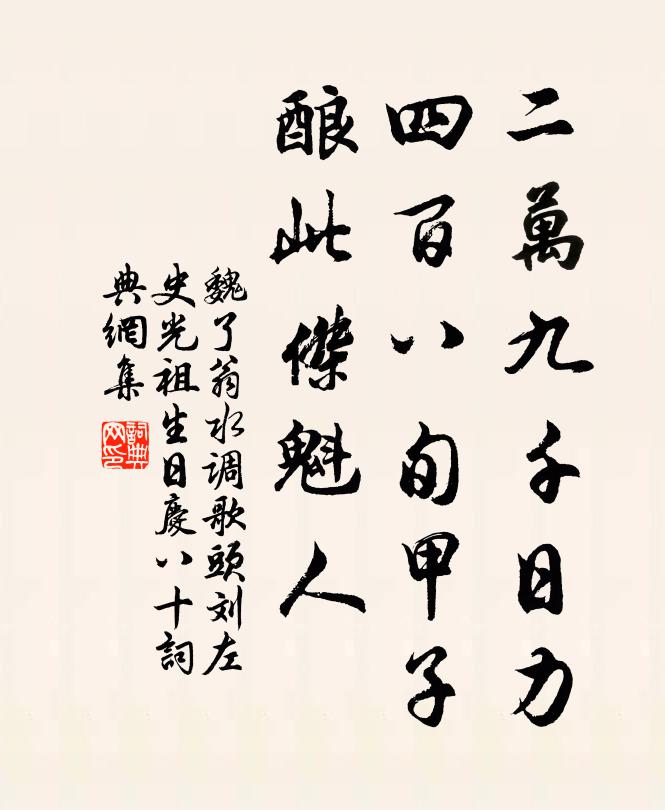 二萬九千日力
四百八旬甲子
酿此傑魁人
魏了翁水调歌頭刘左
史光祖生日慶八十詞
典網集
詞典
网印